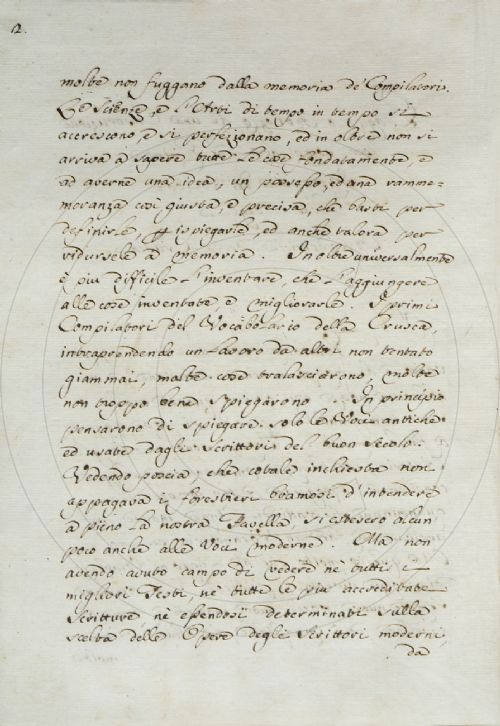 12.
molte non fuggano dalla memoria de' Compilatori.
Le Scienze, e l'Arti di tempo in tempo si
accrescono, e si perfezzionano, ed in oltre non si
arriva a sapere tutte le cose fondatamente, e
ad averne una idea, un possesso, ed una ramme=
moranza così giusta, e precisa, che basti per
definirle, per ispiegarle, ed anche talora per
ridursele a memoria. In oltre universalmente
è piu difficile l'inventare, che l'aggiungere
alle cose inventate e migliorarle. I primi
Compilatori del Vocabolario della Crusca,
intraprendendo un lavoro da altri non tentato
giammai, molte cose tralasciarono, molte
non troppo bene spiegarono. In principio
pensarono di spiegare solo le Voci antiche
ed usate dagli Scrittori del buon Secolo.
Vedendo poscia, che cotale inchiesta non
appagava i forestieri bramosi d'intendere
a pieno la nostra Favella, si estesero alcun
poco anche alle Voci moderne. Ma non
avendo avuto campo di vedere nè tutti i
migliori Testi, nè tutte le piu accreditate
Scritture, nè essendosi determinati sulla
scelta delle Opere degli Scrittori moderni,
da